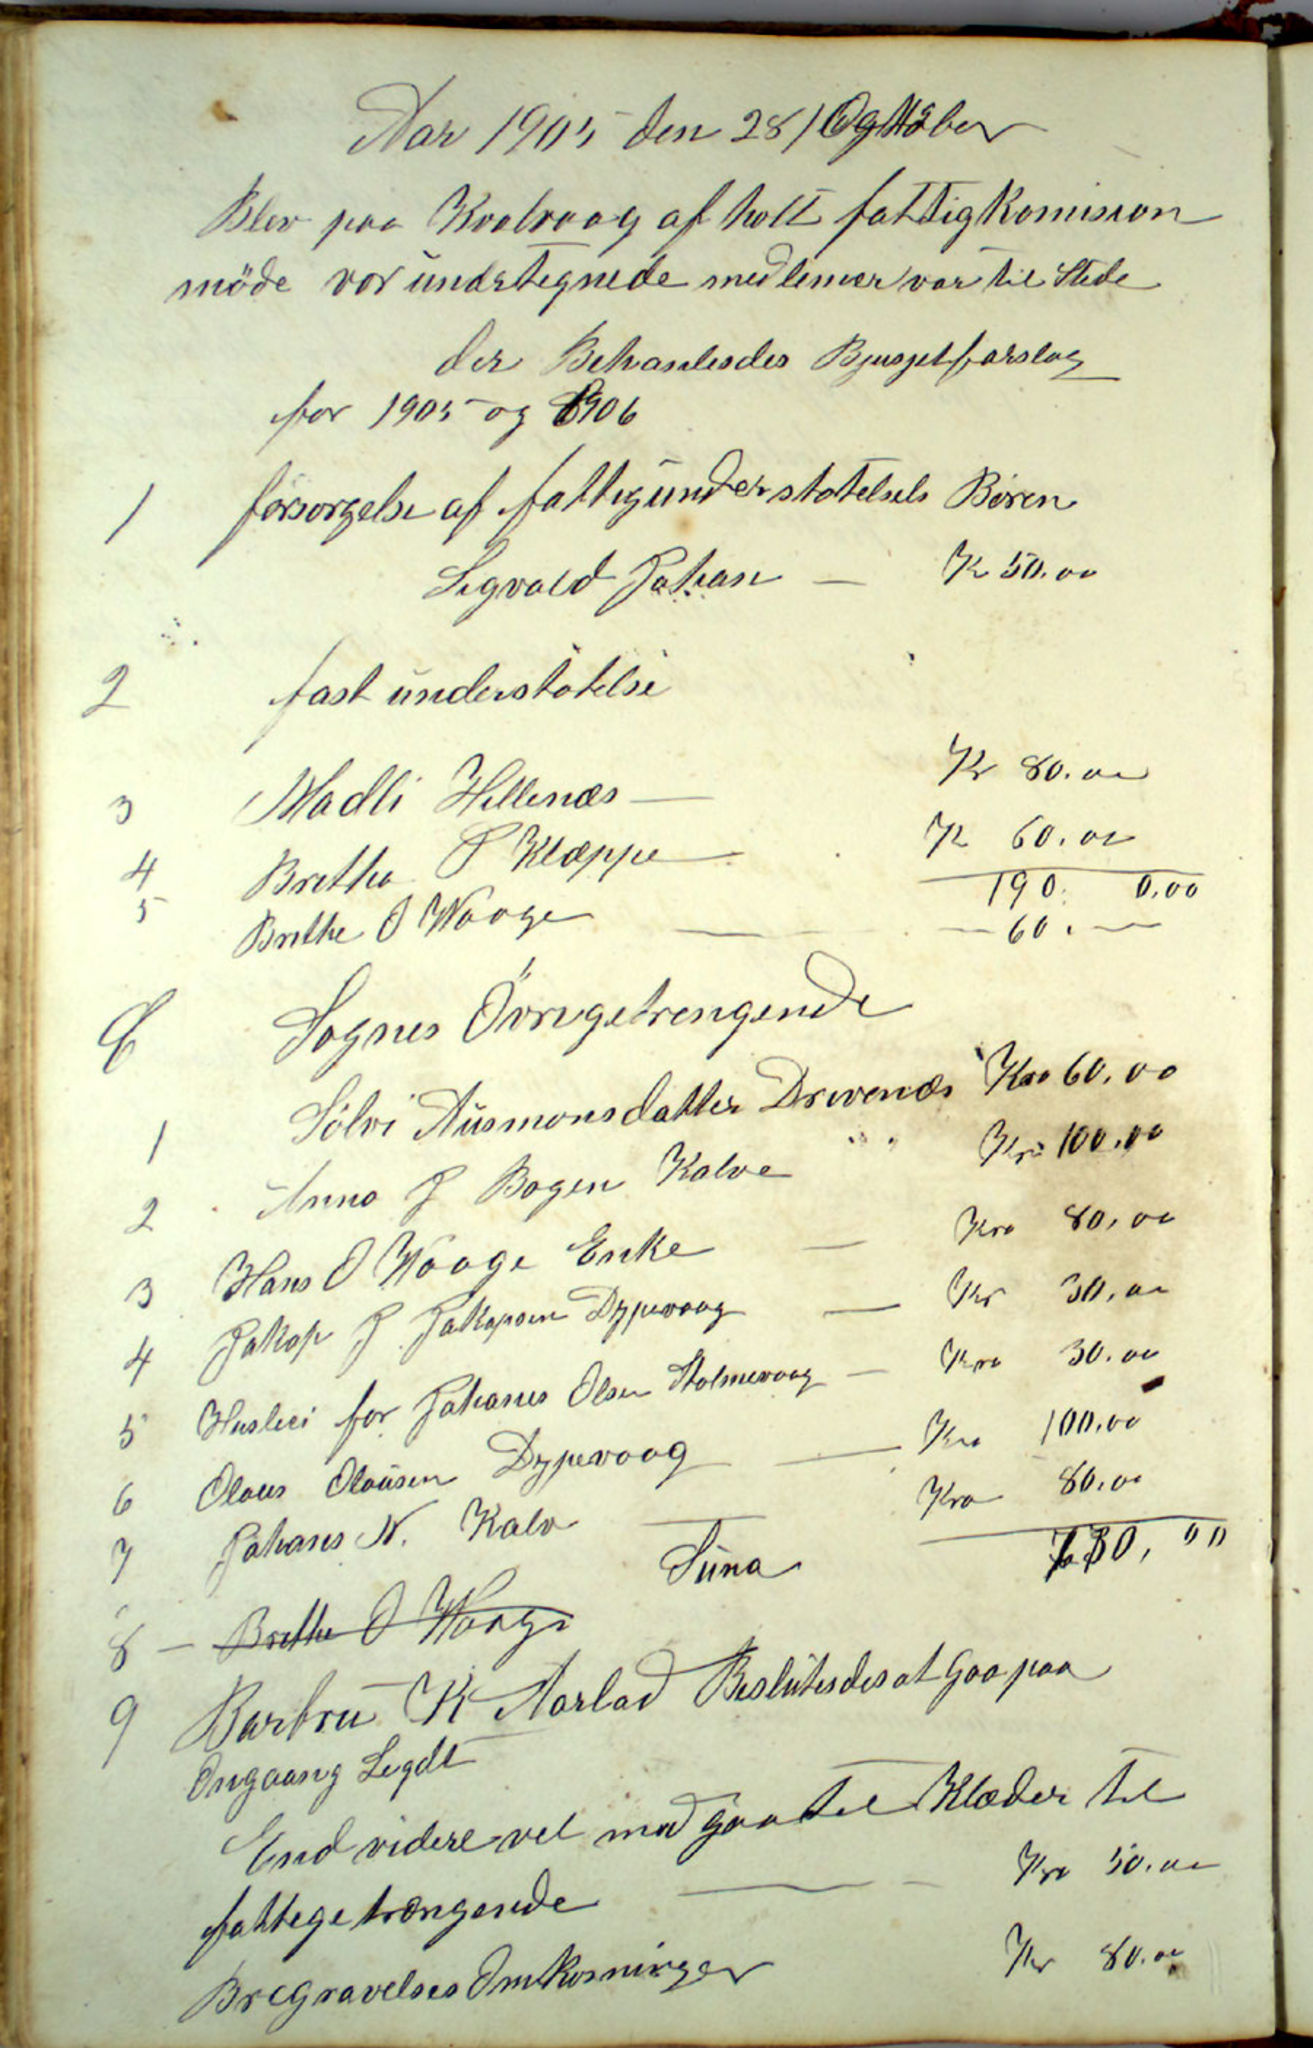 Aar 1905 den 28/ Ogttober
Blev paa Kvalvaag af holt fattig Komision
møde vor undstegnede medlemer var til Stede
der Behandledes Bjusjetforslag
for 1905 og 1906
1 forsorgelse af fattigunderstøtelsels Bören
Sigvald Johan — Kr 50.00
2 fast understøtelse
3 Madli Hillenæs — Kr 80.00
4 Brithe J Klæppe — Kr 60.00
190. 0.00
5 Brithe O Waage — 60. —
Sognes Övrigetrengende
1 Sölvi Ausmonsdatter Drivenæs Kro 60.00
2 Anna J Bogen Kalve " " Kro 100.00
3 Hans O Waage Enke — Kro 80,00
4 Jakop J Jakopsen Dypevaag — Kr 30,00
5 Husleie for Johanes Olsen Holmevaag — Kro 30.00
6 Olaus Olausen Dypevaag — Kro 100.00
7 Johanes N. Kalv — Kro 80.00
Suna 730,00
8 — Brithe O Waage
9 Barbru K Aarland Beslutedes at Gaa paa
Ongaang Legdt
End videre vel med gaa til Klæder til
fattege trængende — Kro 50.00
Bregravelses Omkosninger Kr 80.00